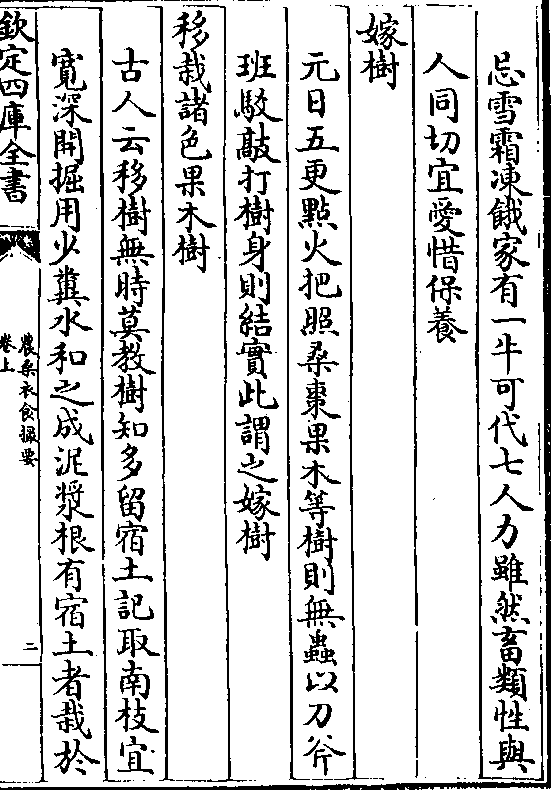 忌雪霜凍餓家有一牛可代七人力雖然畜類性與
人同切宜愛惜保養
嫁樹
元日五更點火把照桑棗果木等樹則無蟲以刀斧
班駮敲打樹身則結實此謂之嫁樹
移栽諸色果木樹
古人云移樹無時莫教樹知多留宿土記取南枝宜
寬深開掘用少糞水和之成泥漿根有宿土者栽於
欽定四庫全書
農桑衣食撮要
卷上
二